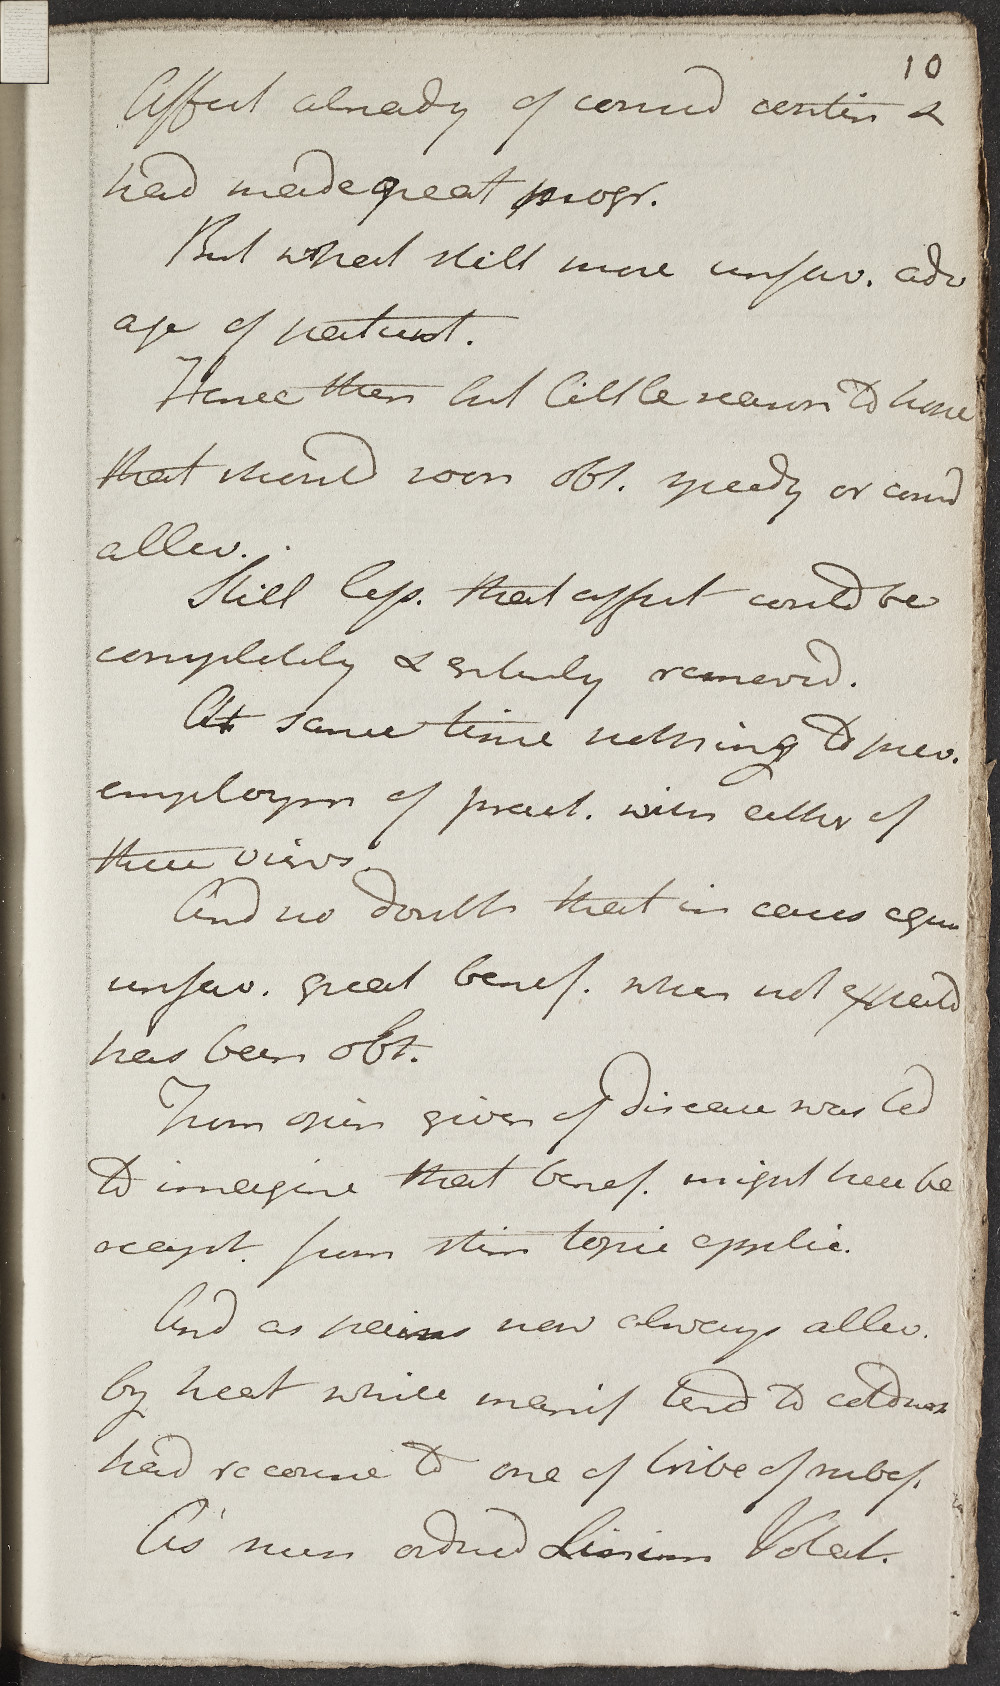 10
Affect already of consid contin &
had made great progr.
But what still more unfav. adv
age of patient.
Hence then but little reason to hope
that should soon obt. speedy or consid
allev.
Still less. that affect could be
completely & entirely removed.
At same time nothing to prev.
employm of pract. with either of
these views.
And no doubt that in cases equ
unfav. great benef. when not expected
has been obt.
From opin given of disease was led
to imagine that benef. might here be
from stim topic applic.
And as pains now always allev.
by heat while manif tend to coldness
had recourse to one of tribe of rubef.
As such ordered Linim Volat.